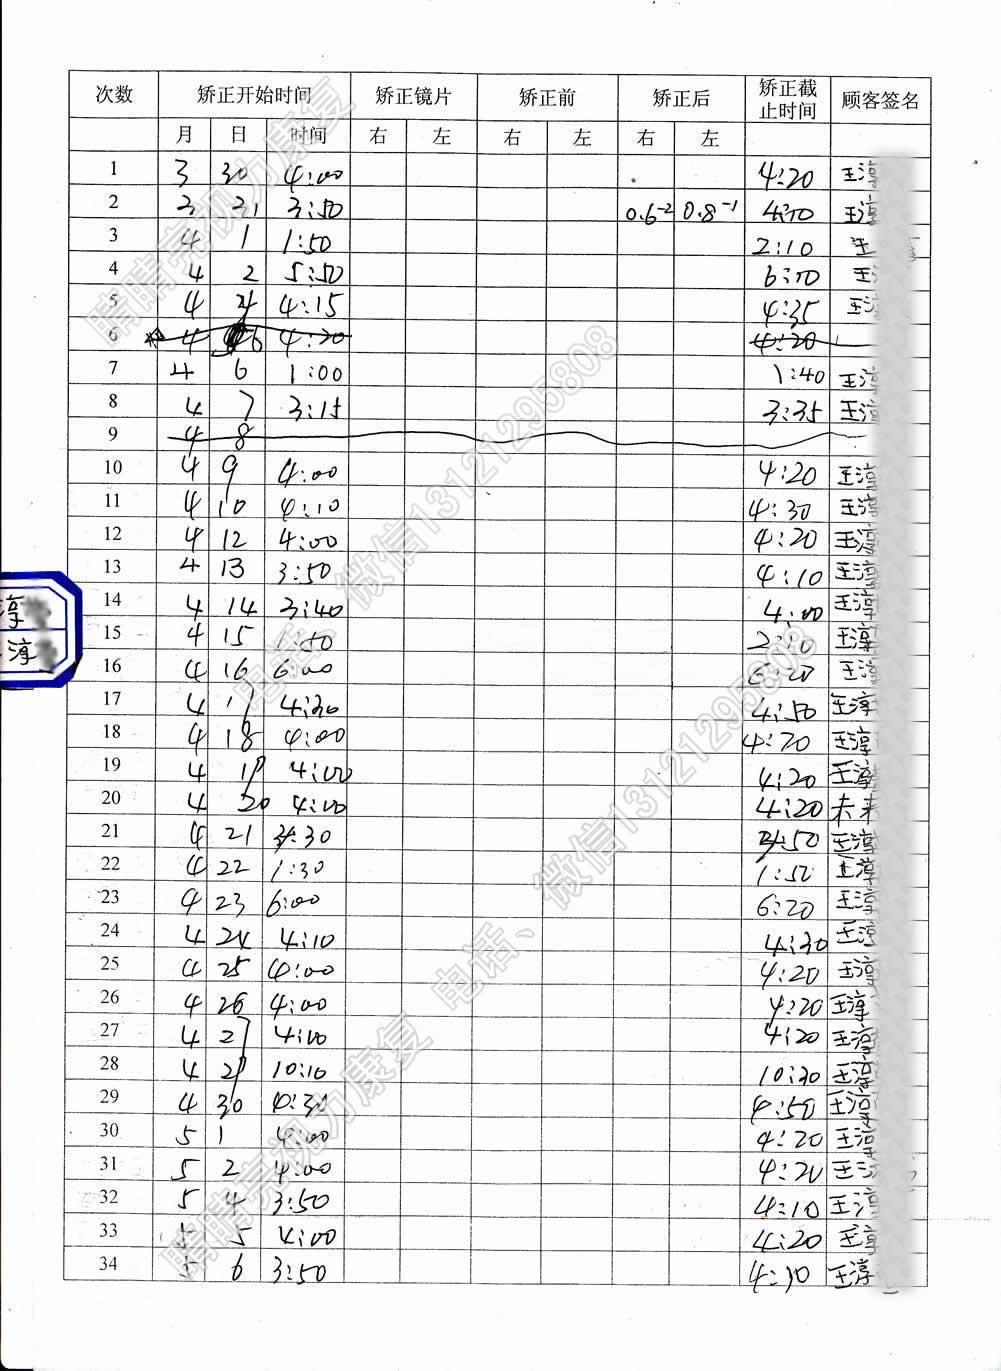 次数 矫正开始时间 矫正镜片 矫正前 矫正后 矫正截止时间 顾客签名
月 日 时间 右 左 右 左 右 左
1 3 30 4:00 4:20 王淳
2 3 31 3:50 0.6⁻² 0.8⁻¹ 4:10 王淳
3 4 1 1:50 2:10
4 4 2 5:50 6:10 王
5 4 4 4:15 4:35 王
6 4 6 4:20 4:20
7 4 6 1:00 1:40 王淳
8 4 7 3:15 3:35 王淳
9 4 8
10 4 9 4:00 4:20 王淳
11 4 10 4:10 4:30 王淳
12 4 12 4:00 4:20 王淳
13 4 13 3:50 4:10 王淳
14 4 14 3:40 4:00 王淳
15 4 15 1:50 2:10 王淳
16 4 16 6:00 6:20 王淳
17 4 17 4:30 4:50 王淳
18 4 18 4:00 4:20 王淳
19 4 19 4:00 4:20 王淳
20 4 20 4:00 4:20 未来
21 4 21 :30 :50 王淳
22 4 22 1:30 1:50 王淳
23 4 23 6:00 6:20 王淳
24 4 24 4:10 4:30 王淳
25 4 25 4:00 4:20 王淳
26 4 26 4:00 4:20 王淳
27 4 27 4:00 4:20 王淳
28 4 29 10:10 10:30 王淳
29 4 30 4:30 4:50 王淳
30 5 1 4:00 4:20 王淳
31 5 2 4:00 4:20 王
32 5 4 3:50 4:10 王淳
33 5 5 4:00 4:20 王淳
34 5 6 3:50 4:10 王淳
淳
淳
睛睛亮视力康复
电话、微信13121295808
睛睛亮视力康复
电话、微信13121295808